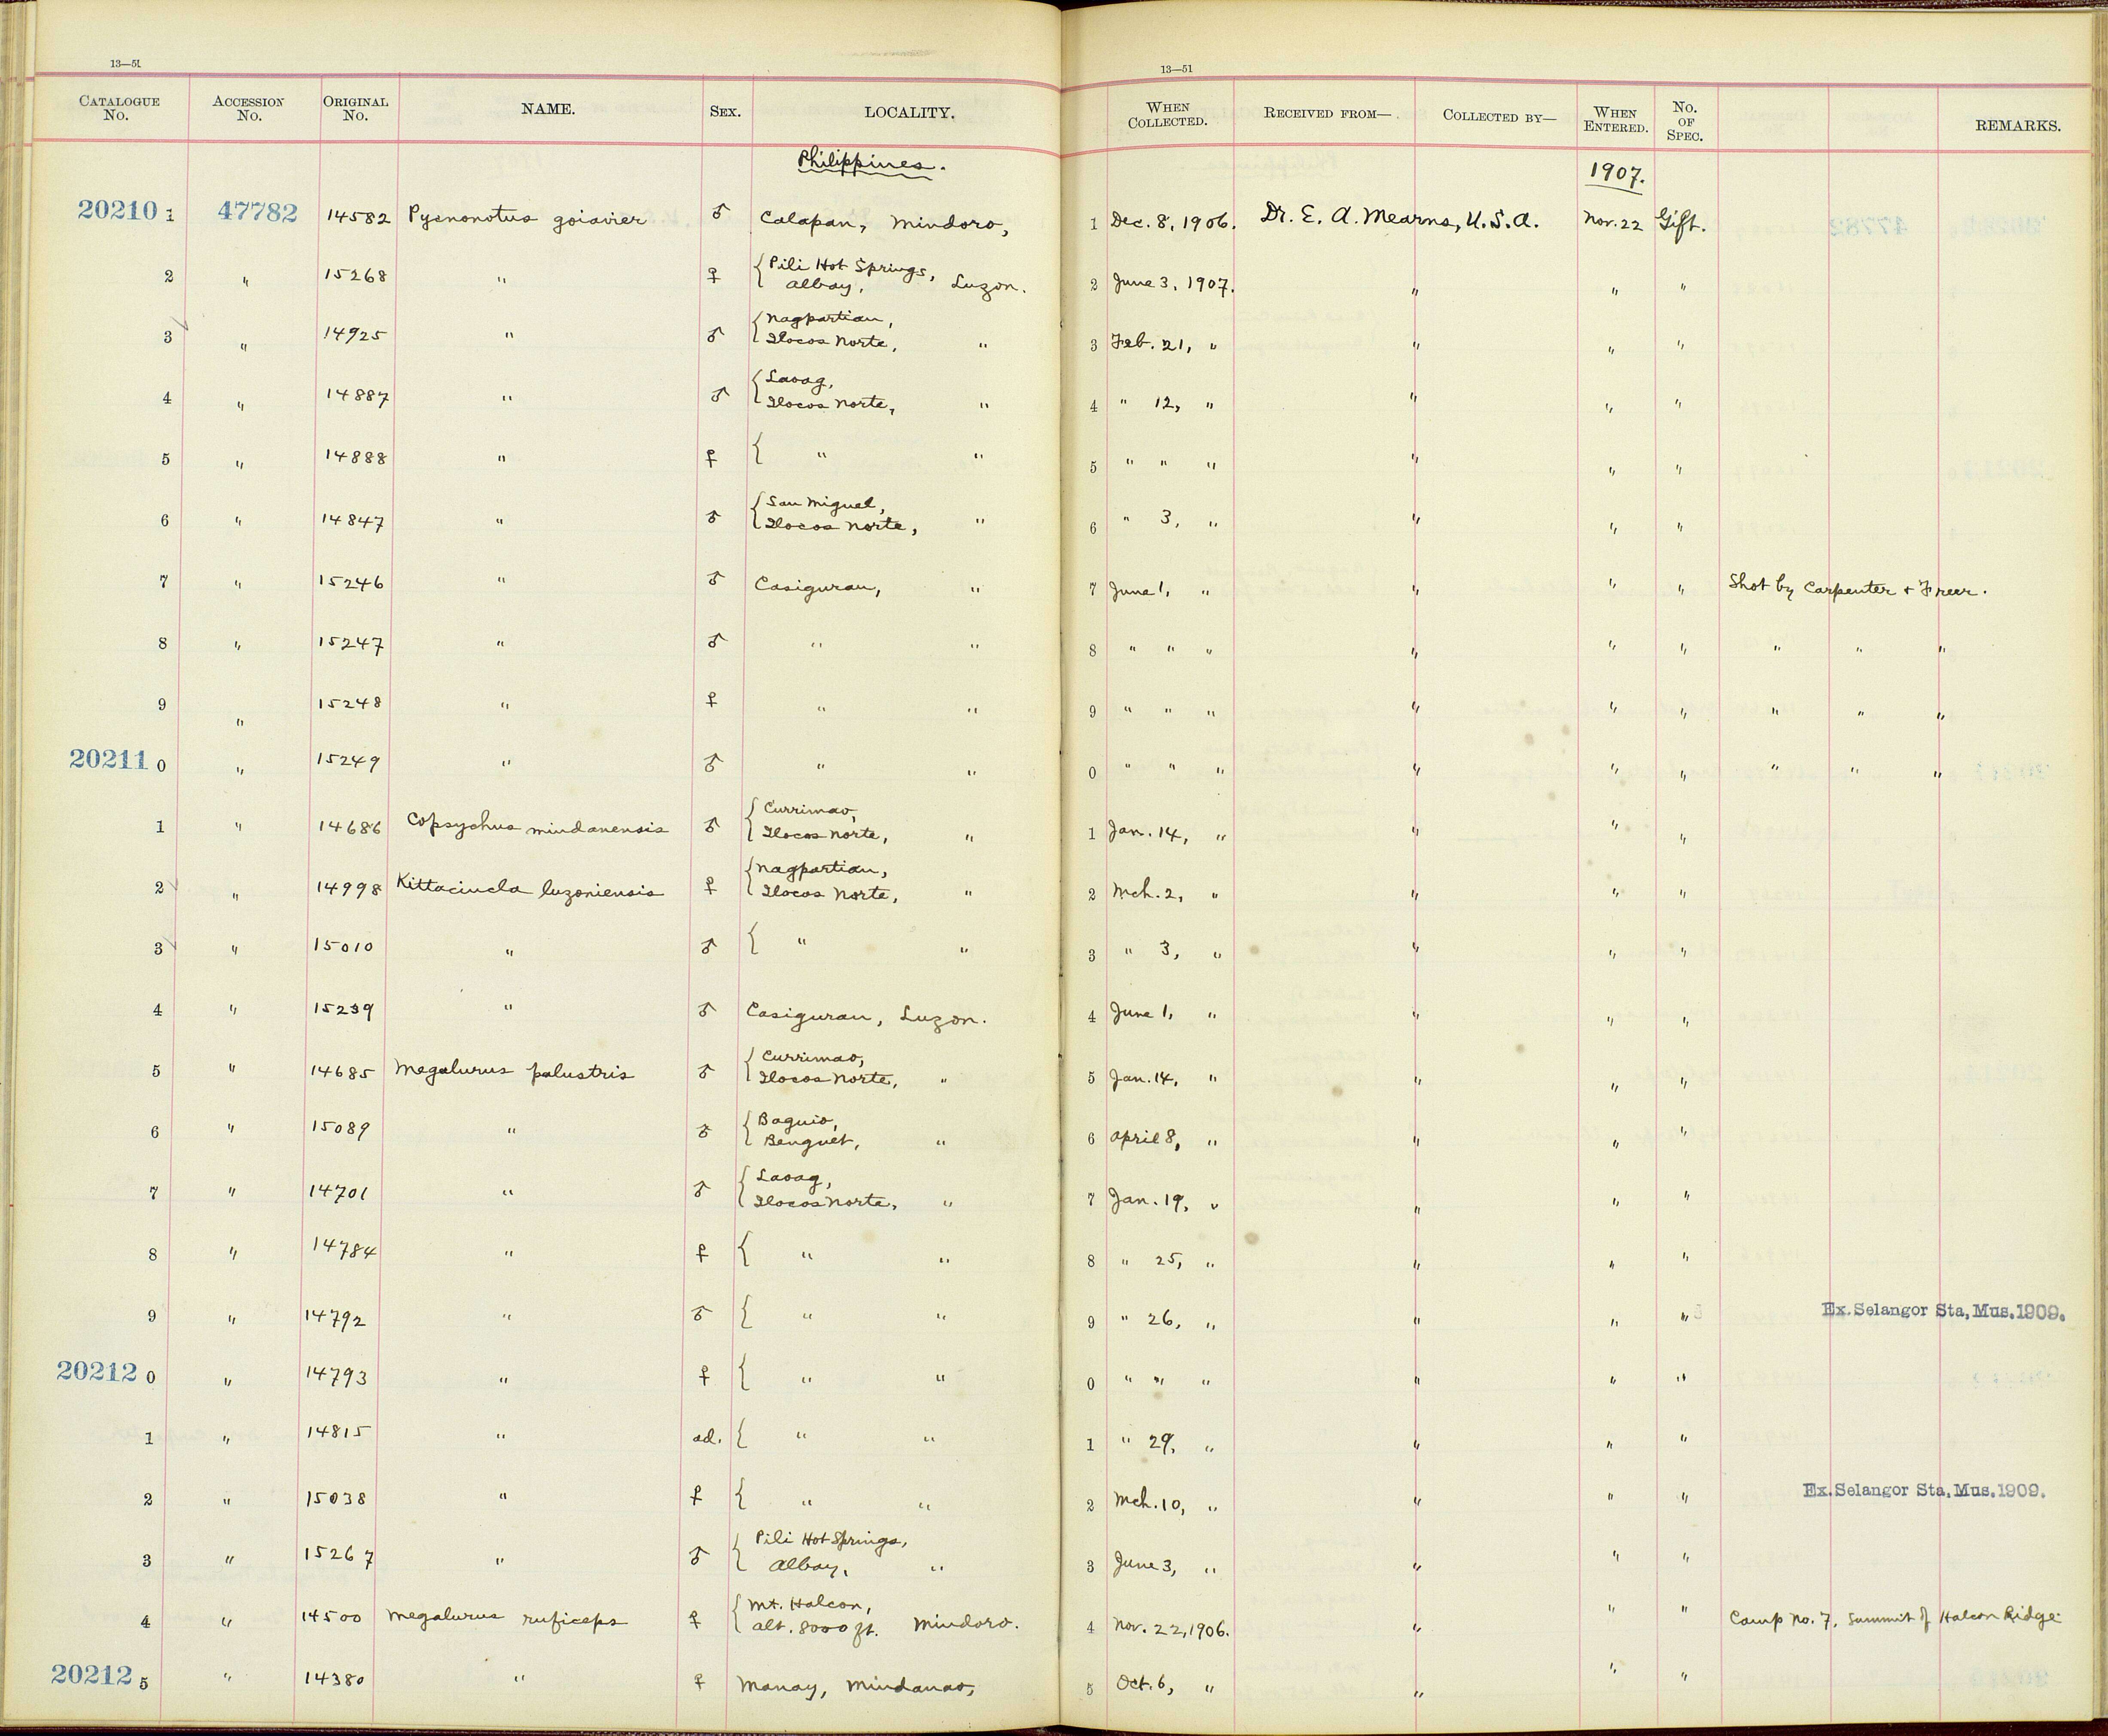 13—51
13—51
CATALOGUE No. ACCESSION No. ORIGINAL No. NAME. SEX. LOCALITY. WHEN COLLECTED. RECEIVED FROM— COLLECTED BY— WHEN ENTERED. No. OF SPEC. REMARKS.
Philippines. 1907.
20210 1 47782 14582 Pycnonotus goiavier ♂ Calapan, Mindoro, 1 Dec. 8, 1906. Dr. E. A. Mearns, U.S.A. Nov. 22 Gift.
2 " 15268 " ♀ { Pili Hot Springs, Albay, Luzon. 2 June 3, 1907. " " "
3 " 14925 " ♂ { Nagpartian, Ilocos Norte, " 3 Feb. 21, " " " "
4 " 14887 " ♂ { Laoag, Ilocos Norte, " 4 " 12, " " " "
5 " 14888 " ♀ { " " 5 " " " " " "
6 " 14847 " ♂ { San Miguel, Ilocos Norte, " 6 " 3, " " " "
7 " 15246 " ♂ Casiguran, " 7 June 1, " " " " Shot by Carpenter + Freer.
8 " 15247 " ♂ " " 8 " " " " " " " " "
9 " 15248 " ♀ " " 9 " " " " " " " " "
20211 0 " 15249 " ♂ " " 0 " " " " " " " " "
1 " 14686 Copsychus mindanensis ♂ { Currimao, Ilocos Norte, " 1 Jan. 14, " " " "
2 " 14998 Kittacincla luzoniensis ♀ { Nagpartian, Ilocos Norte, " 2 Mch. 2, " " " "
3 " 15010 " ♂ { " " 3 " 3, " " " "
4 " 15239 " ♂ Casiguran, Luzon. 4 June 1, " " " "
5 " 14685 Megalurus palustris ♂ { Currimao, Ilocos Norte, " 5 Jan. 14, " " " "
6 " 15089 " ♂ { Baguio, Benguet, " 6 April 8, " " " "
7 " 14701 " ♂ { Laoag, Ilocos Norte, " 7 Jan. 19, " " " "
8 " 14784 " ♀ { " " 8 " 25, " " " "
9 " 14792 " ♂ { " " 9 " 26, " " " " Ex. Selangor Sta. Mus. 1909.
20212 0 " 14793 " ♀ { " " 0 " " " " " "
1 " 14815 " ad. { " " 1 " 29, " " " "
2 " 15038 " ♀ { " " 2 Mch. 10, " " " " Ex. Selangor Sta. Mus. 1909.
3 " 15267 " ♂ { Pili Hot Springs, Albay, " 3 June 3, " " " "
4 " 14500 Megalurus ruficeps ♀ { Mt. Halcon, alt. 8000 ft. Mindoro. 4 Nov. 22, 1906. " " " Camp No. 7, Summit of Halcon Ridge
20212 5 " 14380 " ♀ Manay, Mindanao, 5 Oct. 6, " " " "